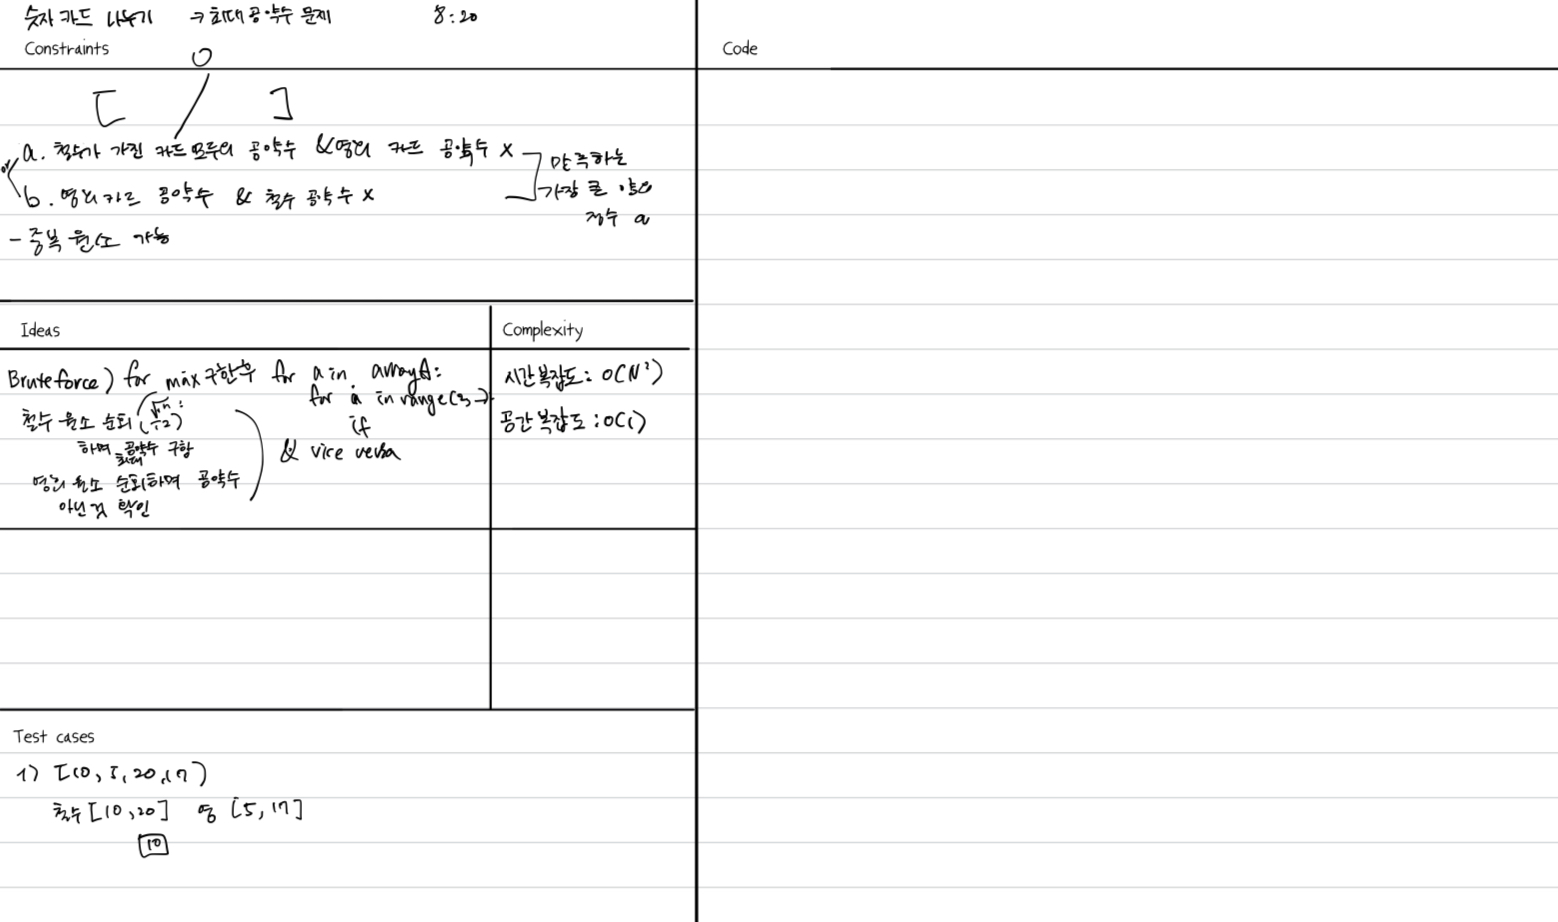 숫자 카드 나누기 → 최대공약수 문제 8:20
Constraints
0
[ / ]
or
a. 철수가 가진 카드 모두의 공약수 & 영희 카드 공약수 x
b. 영희 카드 공약수 & 철수 공약수 x
만족하는
가장 큰 양의
정수 a
- 중복 원소 가능
Ideas
Bruteforce) for max 구한후 for a in arrayA:
for a in range(3, →)
if
& vice versa
철수 원소 순회 (√n : ÷2)
하며 공약수 구함
최대
영희 원소 순회하며 공약수
아닌 것 확인
Complexity
시간복잡도: O(N²)
공간복잡도: O(1)
Test cases
1) [10, 5, 20, 17]
철수 [10, 20] 영 [5, 17]
10
Code